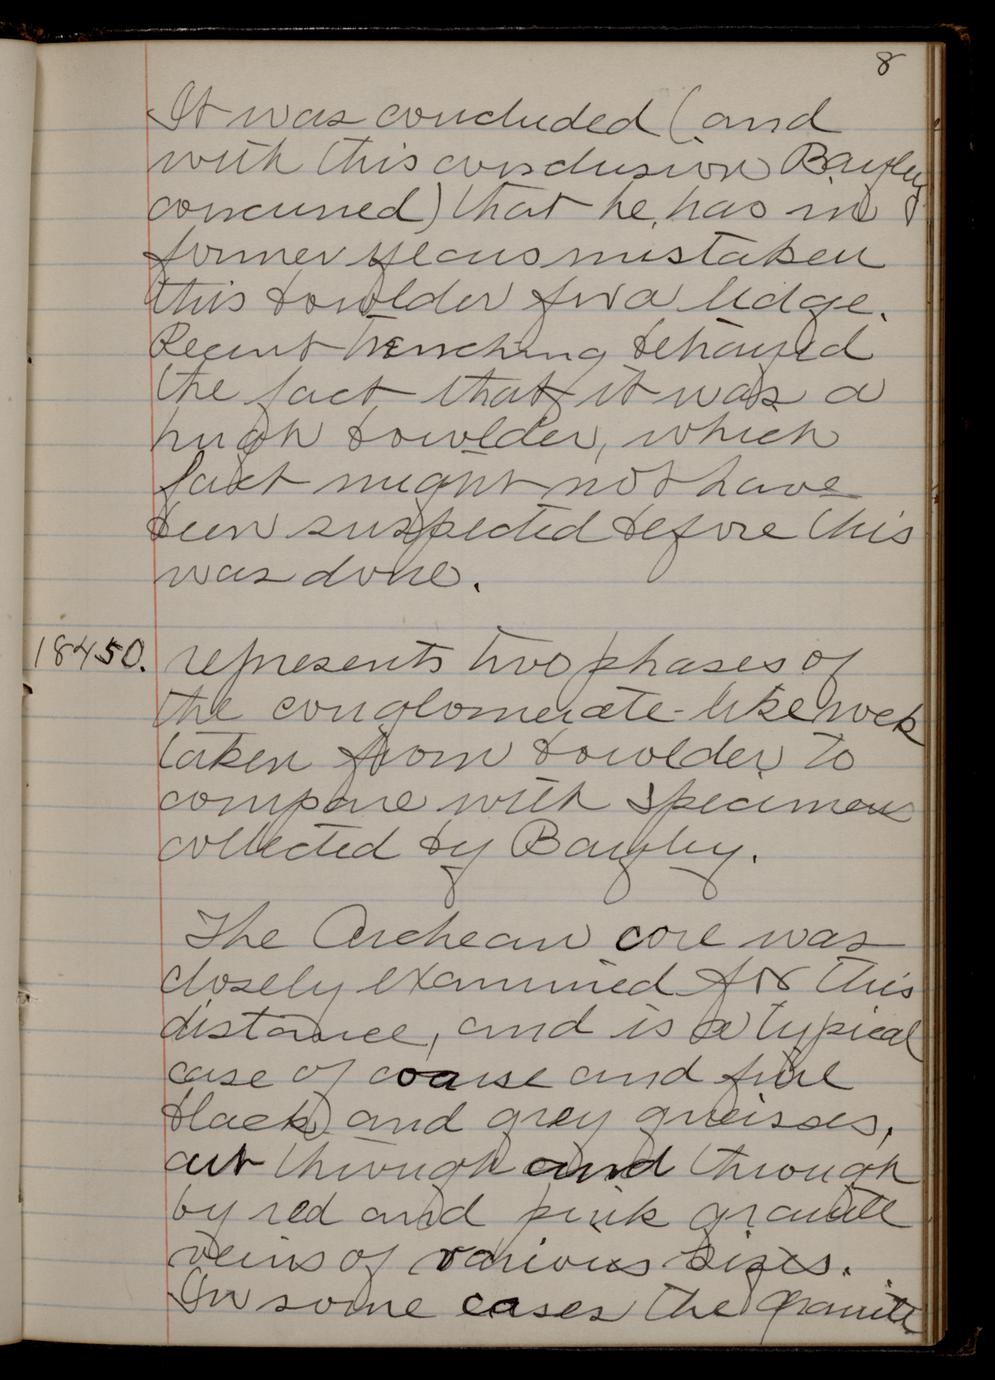 8
It was concluded (and
with this conclusion Bayley
concurred) that he has in
former years mistaken
this bowlder for a ledge.
Recent trenching betrayed
the fact that it was a
hugh bowlder, which
fact might not have
been suspected before this
was done.
18450. represents two phases of
the conglomerate-like rock
taken from bowlder to
compare with specimens
collected by Bayley.
The Archean core was
closely examined for this
distance, and is a typical
case of coarse and fine
black and grey gneisses,
cut through and through
by red and pink granite
veins of various sizes.
In some cases the granite